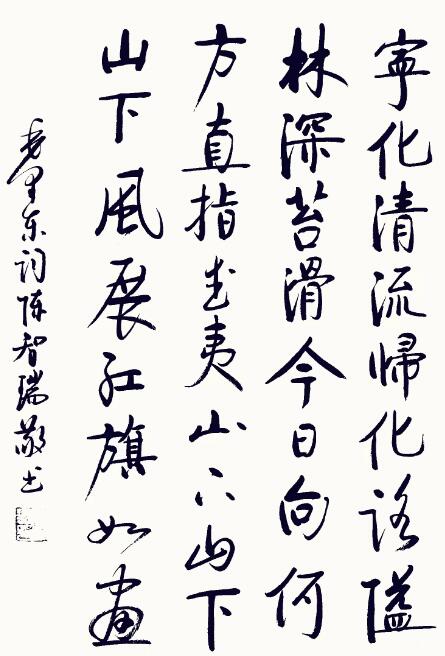 寧化清流帰化路隘
林深苔滑今日向何
方直指武夷山下山下
山下風展红旗如畫
毛泽东词陈智瑞敬书